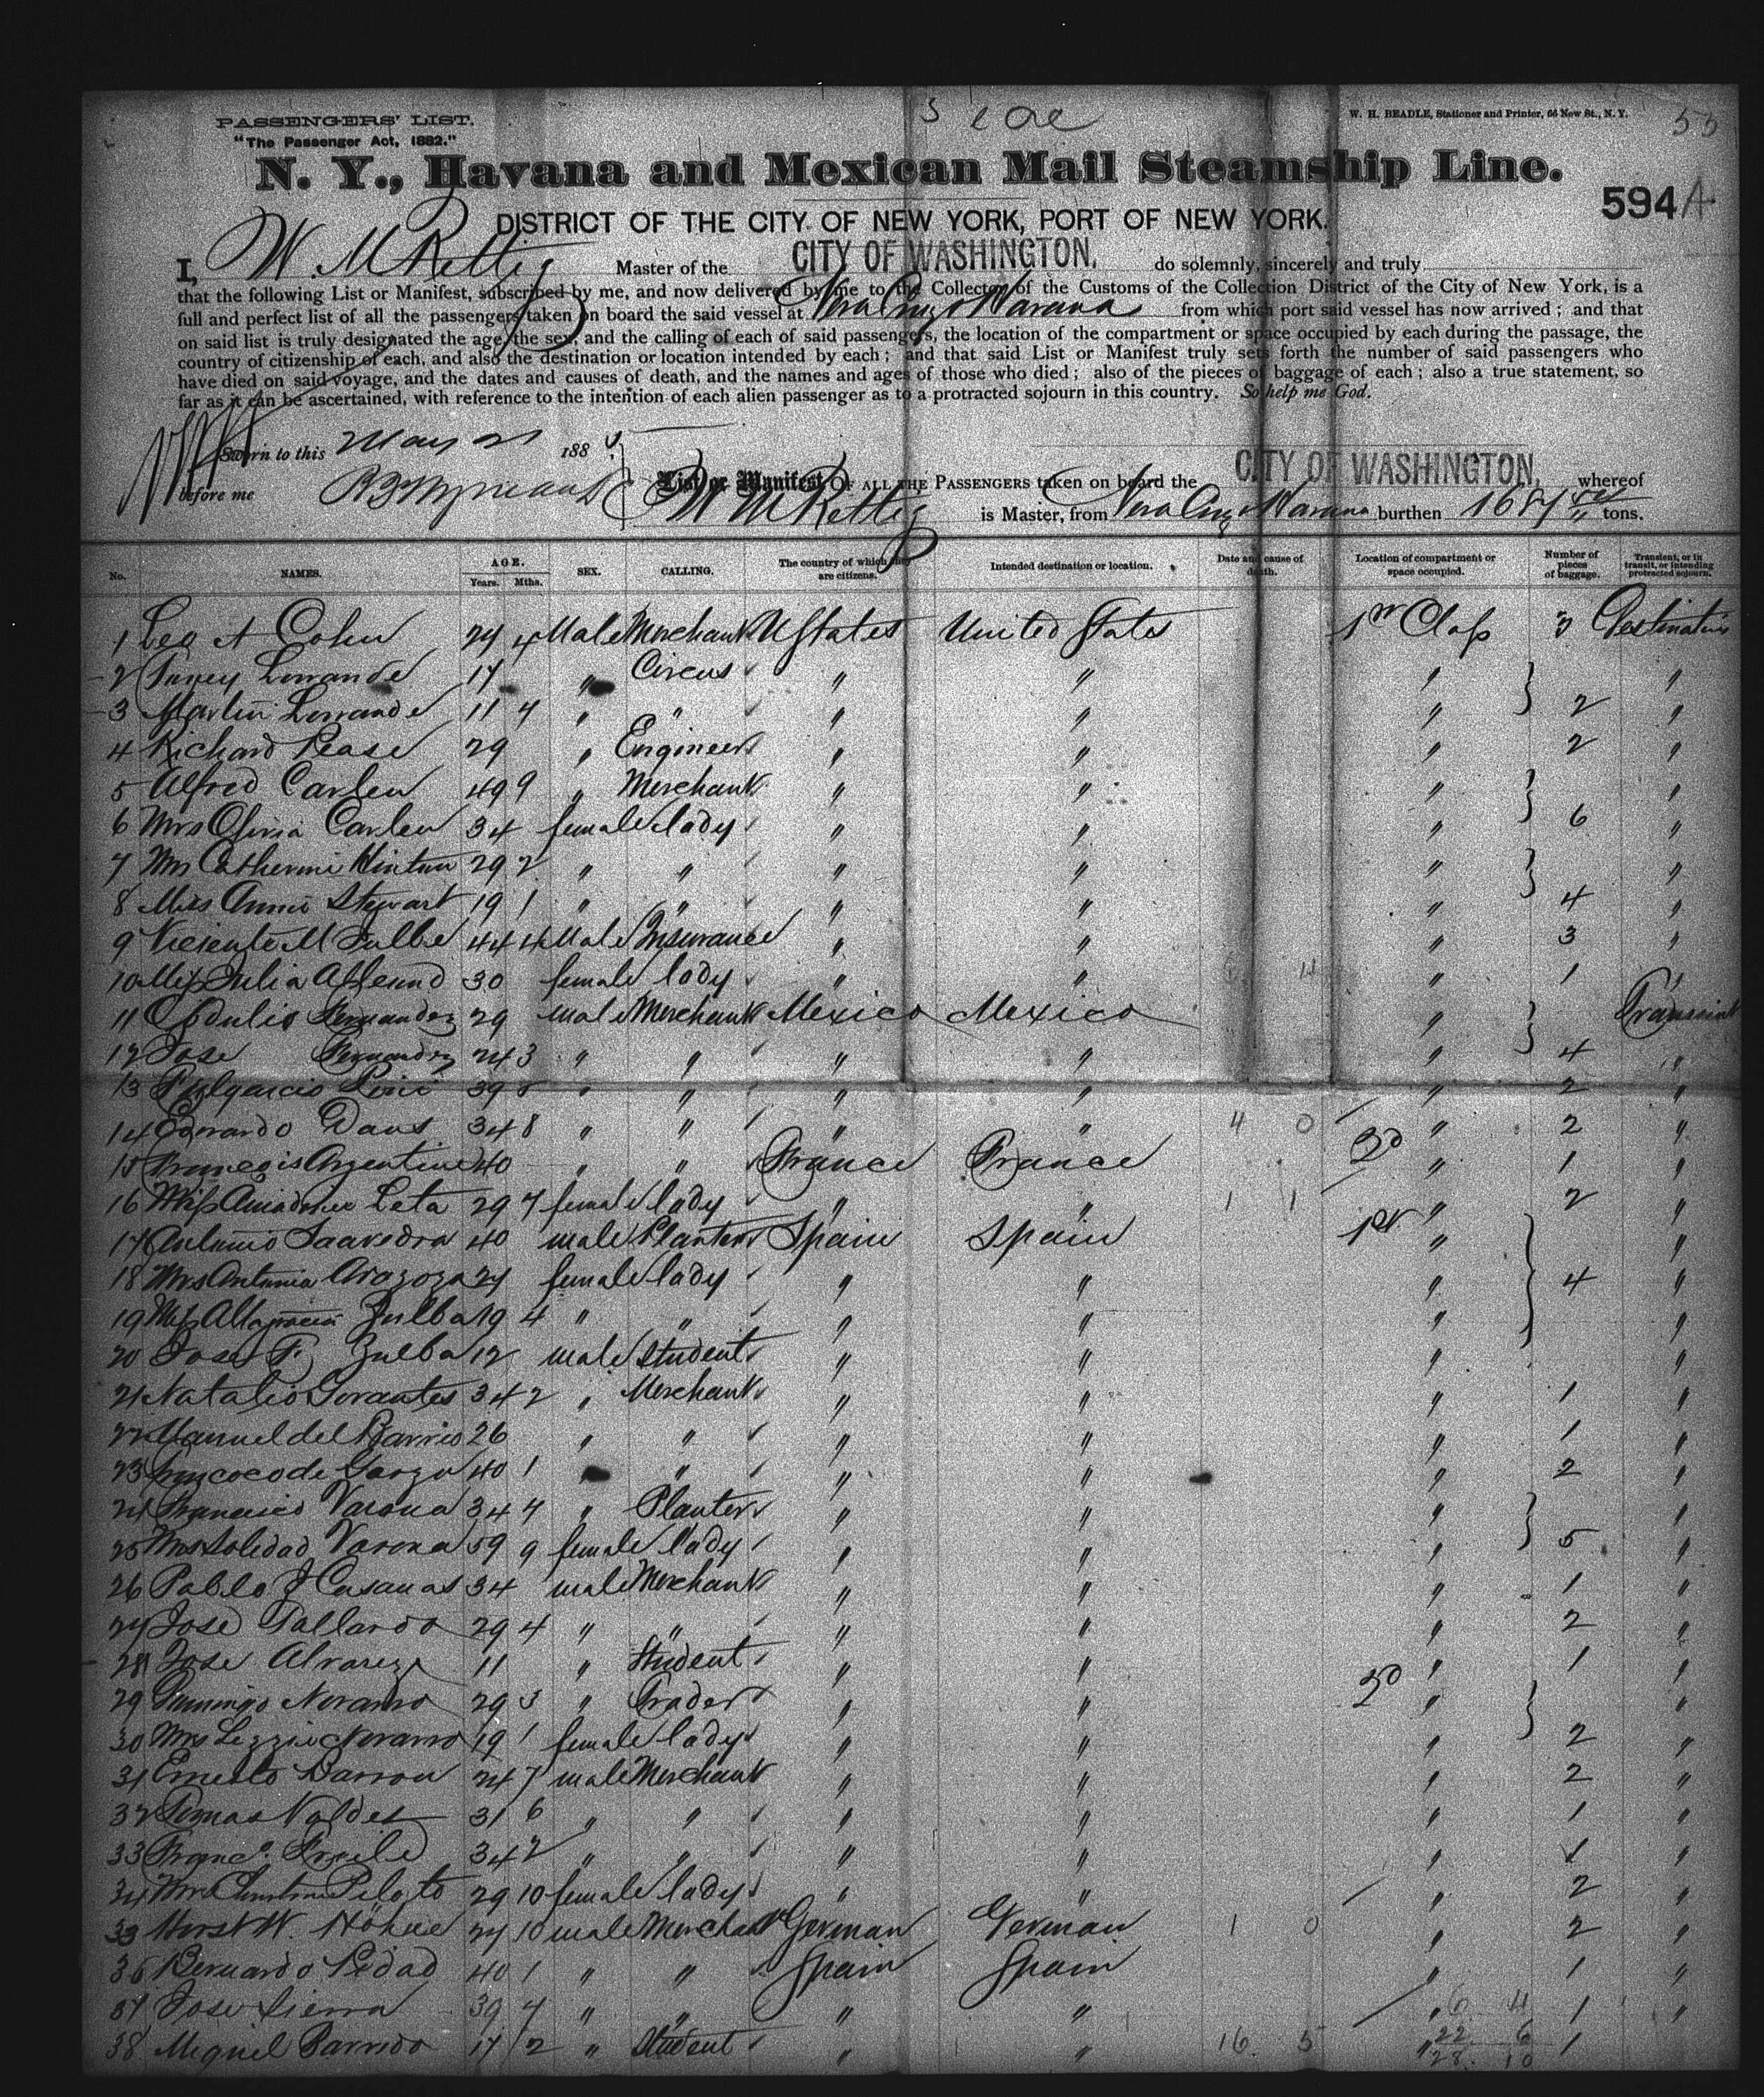 PASSENGERS' LIST.
"The Passenger Act, 1882."
W. H. BEADLE, Stationer and Printer, 66 New St., N. Y.
N. Y., Havana and Mexican Mail Steamship Line.
594 A
DISTRICT OF THE CITY OF NEW YORK, PORT OF NEW YORK.
I, W. M Rettig Master of the CITY OF WASHINGTON. do solemnly, sincerely and truly
that the following List or Manifest, subscribed by me, and now delivered by me to the Collector of the Customs of the Collection District of the City of New York, is a
full and perfect list of all the passengers taken on board the said vessel at Vera Cruz Havana from which port said vessel has now arrived; and that
on said list is truly designated the age, the sex, and the calling of each of said passengers, the location of the compartment or space occupied by each during the passage, the
country of citizenship of each, and also the destination or location intended by each; and that said List or Manifest truly sets forth the number of said passengers who
have died on said voyage, and the dates and causes of death, and the names and ages of those who died; also of the pieces of baggage of each; also a true statement, so
far as it can be ascertained, with reference to the intention of each alien passenger as to a protracted sojourn in this country. So help me God.
Sworn to this May 21 188
before me
List or Manifest OF ALL THE PASSENGERS taken on board the CITY OF WASHINGTON, whereof
W M Rettig is Master, from Vera Cruz Havana burthen tons.
No. NAMES. AGE. Years. Mths. SEX. CALLING. The country of which they are citizens. Intended destination or location. Date and cause of death. Location of compartment or space occupied. Number of pieces of baggage. Transient, or in transit, or intending protracted sojourn.
1 Leo A Cohn 29 4 Male Merchant U States United States 1st Class 3 Destination
2 Lorande 17 " Circus " " " "
3 Martin Lorande 11 4 " " " " " 2 "
4 Richard Pease 29 " Engineer " " " 2 "
5 Alfred Carlen 49 9 " Merchant " " " "
6 Mrs Olivia Carlen 34 female lady " " " 6 "
7 Mrs Catherine Hinton 29 2 " " " " " "
8 Miss Annie Stewart 19 1 " " " " " 4 "
9 Viciente M Julbe 44 4 Male Insurance " " " 3 "
10 Miss Julia 30 female lady " " " 1 "
11 Obdulio Fernandez 29 male Merchant Mexico Mexico " Transient
12 Jose Fernandez 24 3 " " " " " 4 "
13 Fulgencio 39 " " " " " 2 "
14 Edwardo Daus 34 8 " " " " " 2 "
15 Argentine 40 " " France France 2d " 1 "
16 Miss Leta 29 7 female lady " " " 2 "
17 Antonio Saavedra 40 male Planter Spain Spain 1st " "
18 Mrs Antonia Arazoza 29 female lady " " " 4 "
19 Miss Altagracia Julba 19 4 " " " " " "
20 Jose F. Zulba 12 male Student " " " "
21 Natalio 34 2 " Merchant " " " 1 "
22 Manuel del Barrio 26 " " " " " 1 "
23 40 1 " " " " " 2 "
24 Francisco Varona 34 4 " Planter " " " "
25 Mrs Soledad Varona 59 9 female lady " " " 5 "
26 Pablo J Casanas 34 male Merchant " " " 1 "
27 Jose Gallardo 29 4 " " " " " 2 "
28 Jose Alvarez 11 " Student " " " 1 "
29 Domingo Navarro 29 3 " Trader " " 2d " "
30 Mrs Lizzie Navarro 19 1 female lady " " " 2 "
31 Ernesto Barron 24 7 male Merchant " " " 2 "
32 Tomas Valdes 31 6 " " " " " 1 "
33 Franco. 34 2 " " " " " 1 "
34 Mrs Piloto 29 10 female lady " " " 2 "
35 Horst W. Höhne 29 10 male Merchant German German 1 0 " 2 "
36 Bernardo Pedad 40 1 " " Spain Spain " 1 "
37 Jose Sierra 39 4 " " " " " 1 "
38 Miguel Barrido 17 2 " Student " " 16 5 " 1